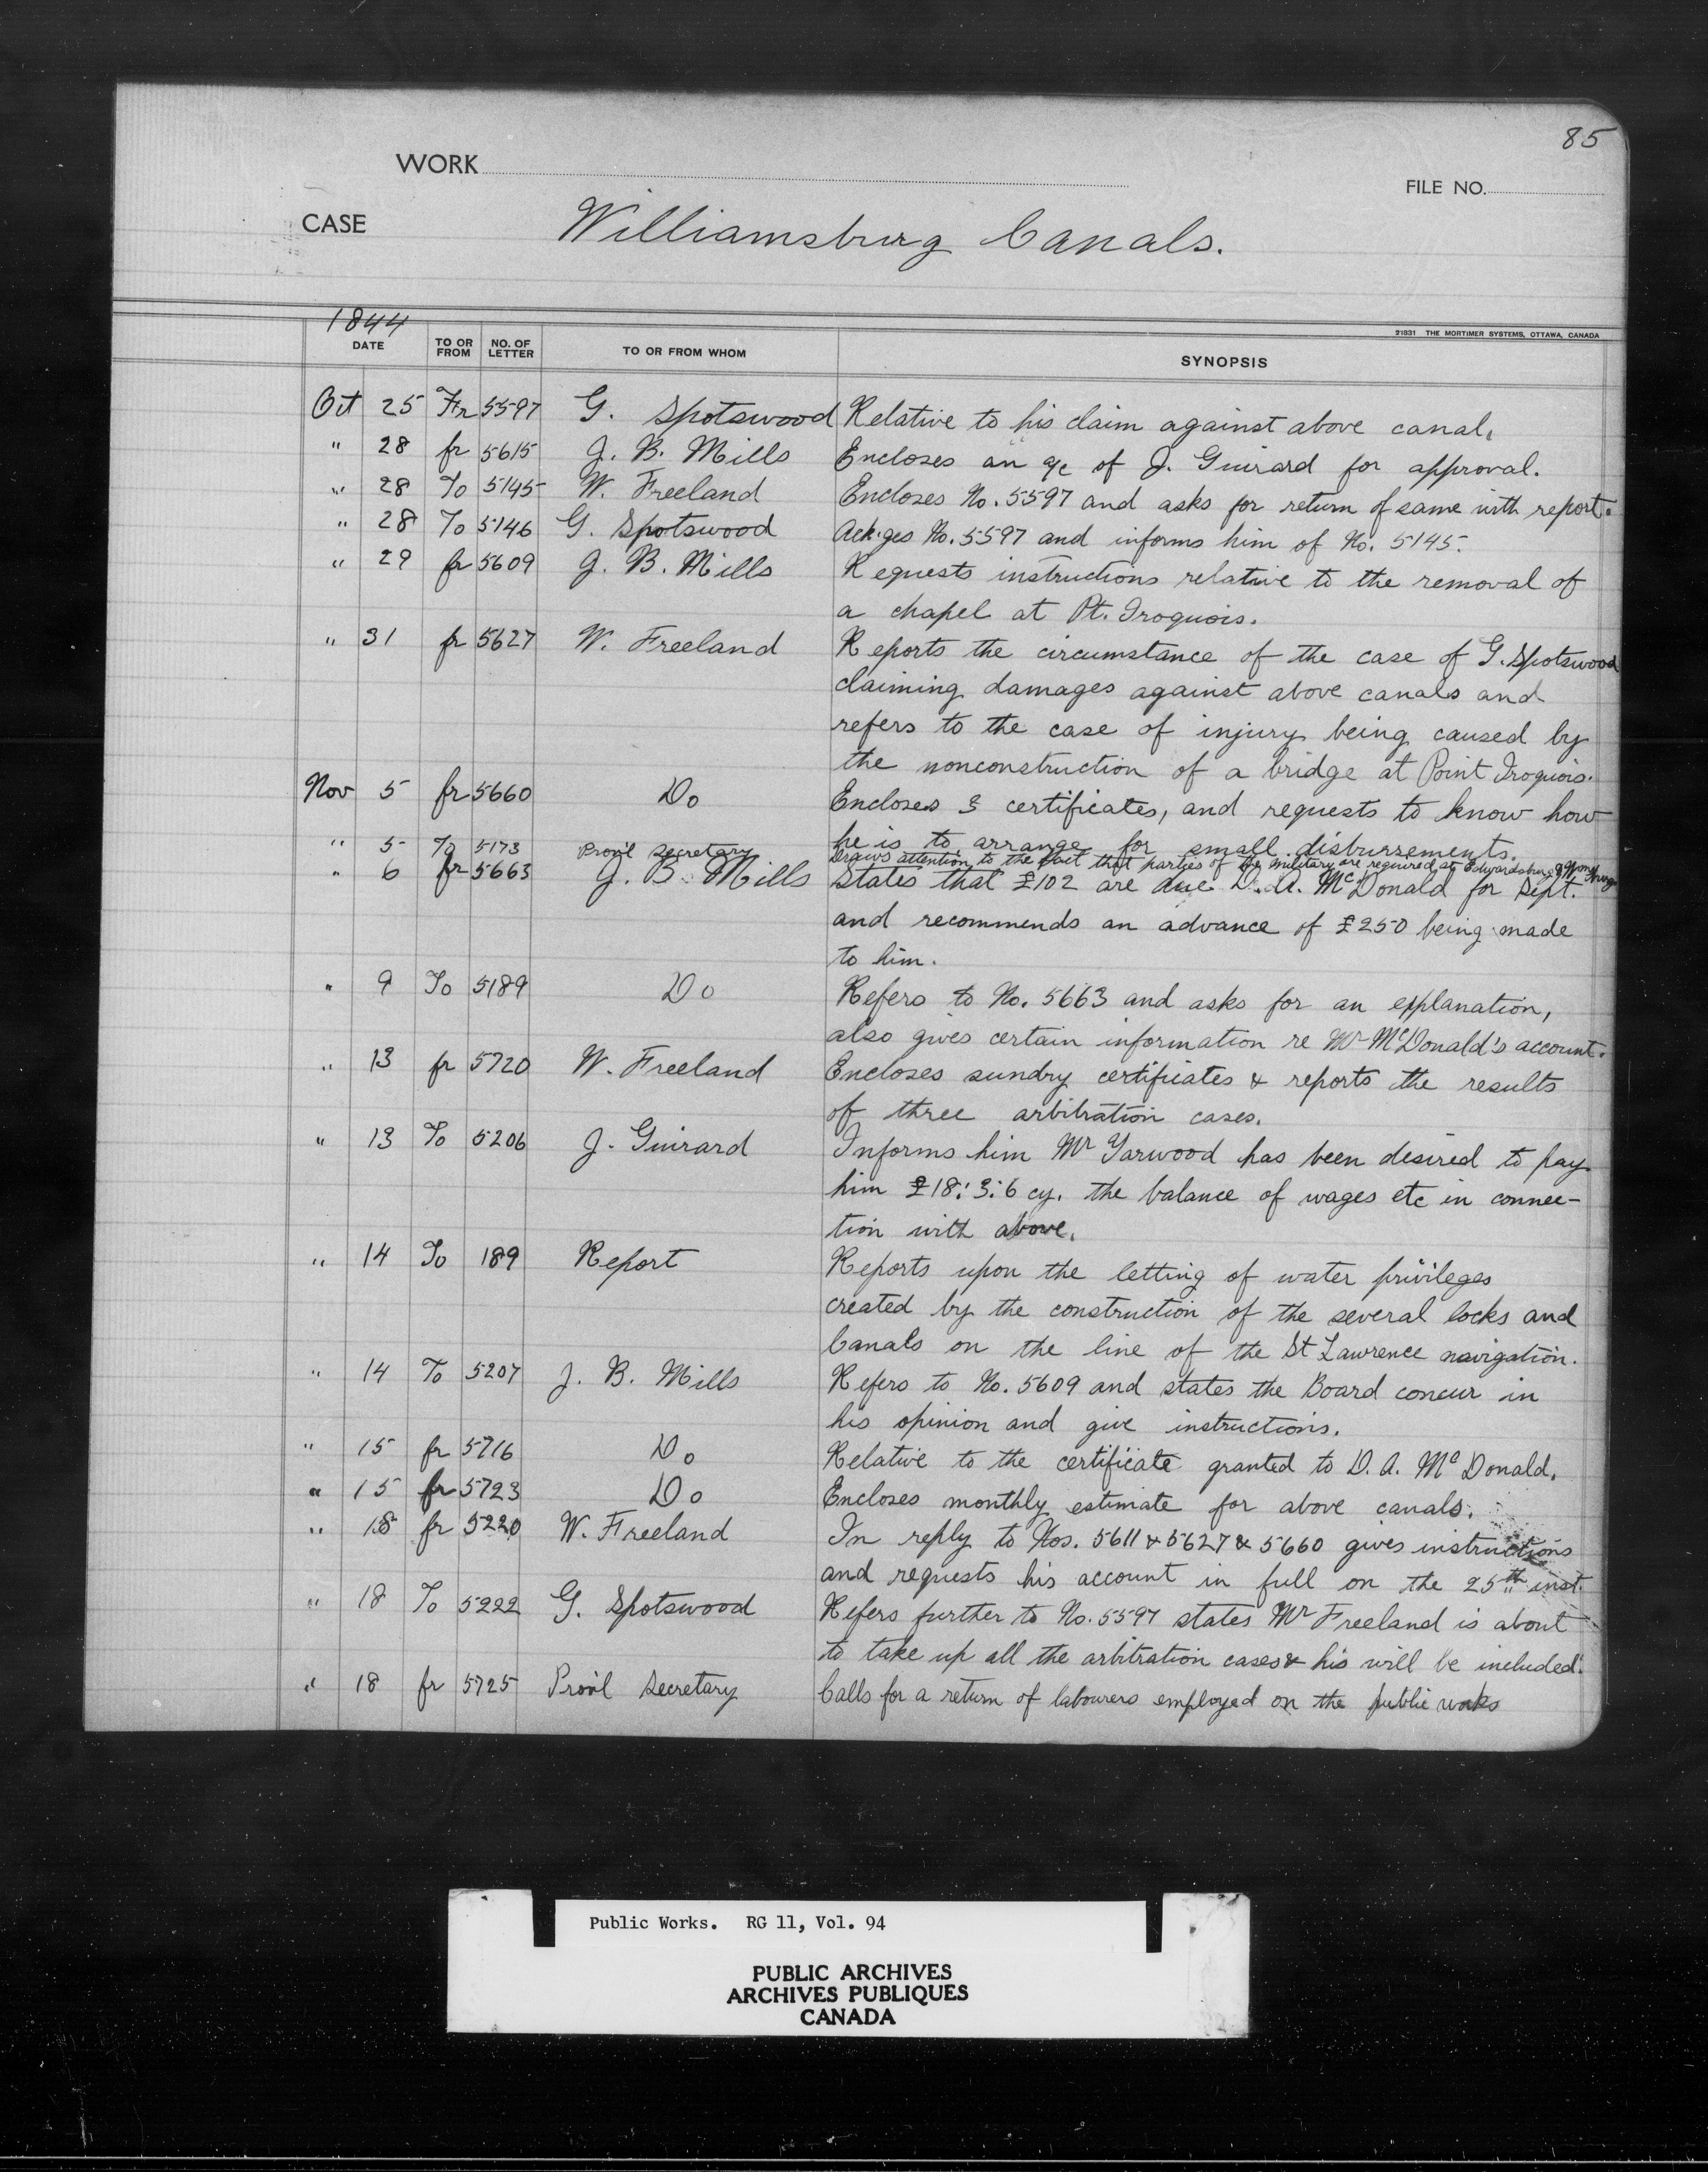 85
WORK
FILE NO.
CASE Williamsburg Canals.
1844
21831 THE MORTIMER SYSTEMS, OTTAWA, CANADA
DATE TO OR FROM NO. OF LETTER TO OR FROM WHOM SYNOPSIS
Oct 25 Fr 5597 G. Spotswood Relative to his claim against above canal.
" 28 fr 5615 J. B. Mills Encloses an a/c of J. Guirard for approval.
" 28 To 5145 W. Freeland Encloses No. 5597 and asks for return of same with report.
" 28 To 5146 G. Spotswood Ack.ges No. 5597 and informs him of No. 5145.
" 29 fr 5609 J. B. Mills Requests instructions relative to the removal of
a chapel at Pt. Iroquois.
" 31 fr 5627 W. Freeland Reports the circumstance of the case of G. Spotswood
claiming damages against above canals and
refers to the case of injury being caused by
the nonconstruction of a bridge at Point Iroquois.
Nov 5 fr 5660 Do Encloses 3 certificates, and requests to know how
he is to arrange for small disbursements.
" 5 To 5173 Prov'l Secretary Draws attention to the fact that parties of the military are required at Edwardsburg &
" 6 fr 5663 J. B. Mills States that £102 are due D. A. McDonald for Sept.
and recommends an advance of £250 being made
to him.
" 9 To 5189 Do Refers to No. 5663 and asks for an explanation,
also gives certain information re Mr McDonald's account.
" 13 fr 5720 W. Freeland Encloses sundry certificates & reports the results
of three arbitration cases.
" 13 To 5206 J. Guirard Informs him Mr Yarwood has been desired to pay
him £18:3:6 cy. the balance of wages etc in connec-
tion with above.
" 14 To 189 Report Reports upon the letting of water privileges
created by the construction of the several locks and
Canals on the line of the St Lawrence navigation.
" 14 To 5207 J. B. Mills Refers to No. 5609 and states the Board concur in
his opinion and give instructions.
" 15 fr 5716 Do Relative to the certificate granted to D. A. McDonald.
" 15 fr 5723 Do Encloses monthly estimate for above canals.
" 18 fr 5220 W. Freeland In reply to Nos. 5611 & 5627 & 5660 gives instructions
and requests his account in full on the 25th inst.
" 18 To 5222 G. Spotswood Refers further to No. 5597 states Mr Freeland is about
to take up all the arbitration cases & his will be included.
" 18 fr 5725 Prov'l Secretary Calls for a return of labourers employed on the public works
Public Works. RG 11, Vol. 94
PUBLIC ARCHIVES
ARCHIVES PUBLIQUES
CANADA